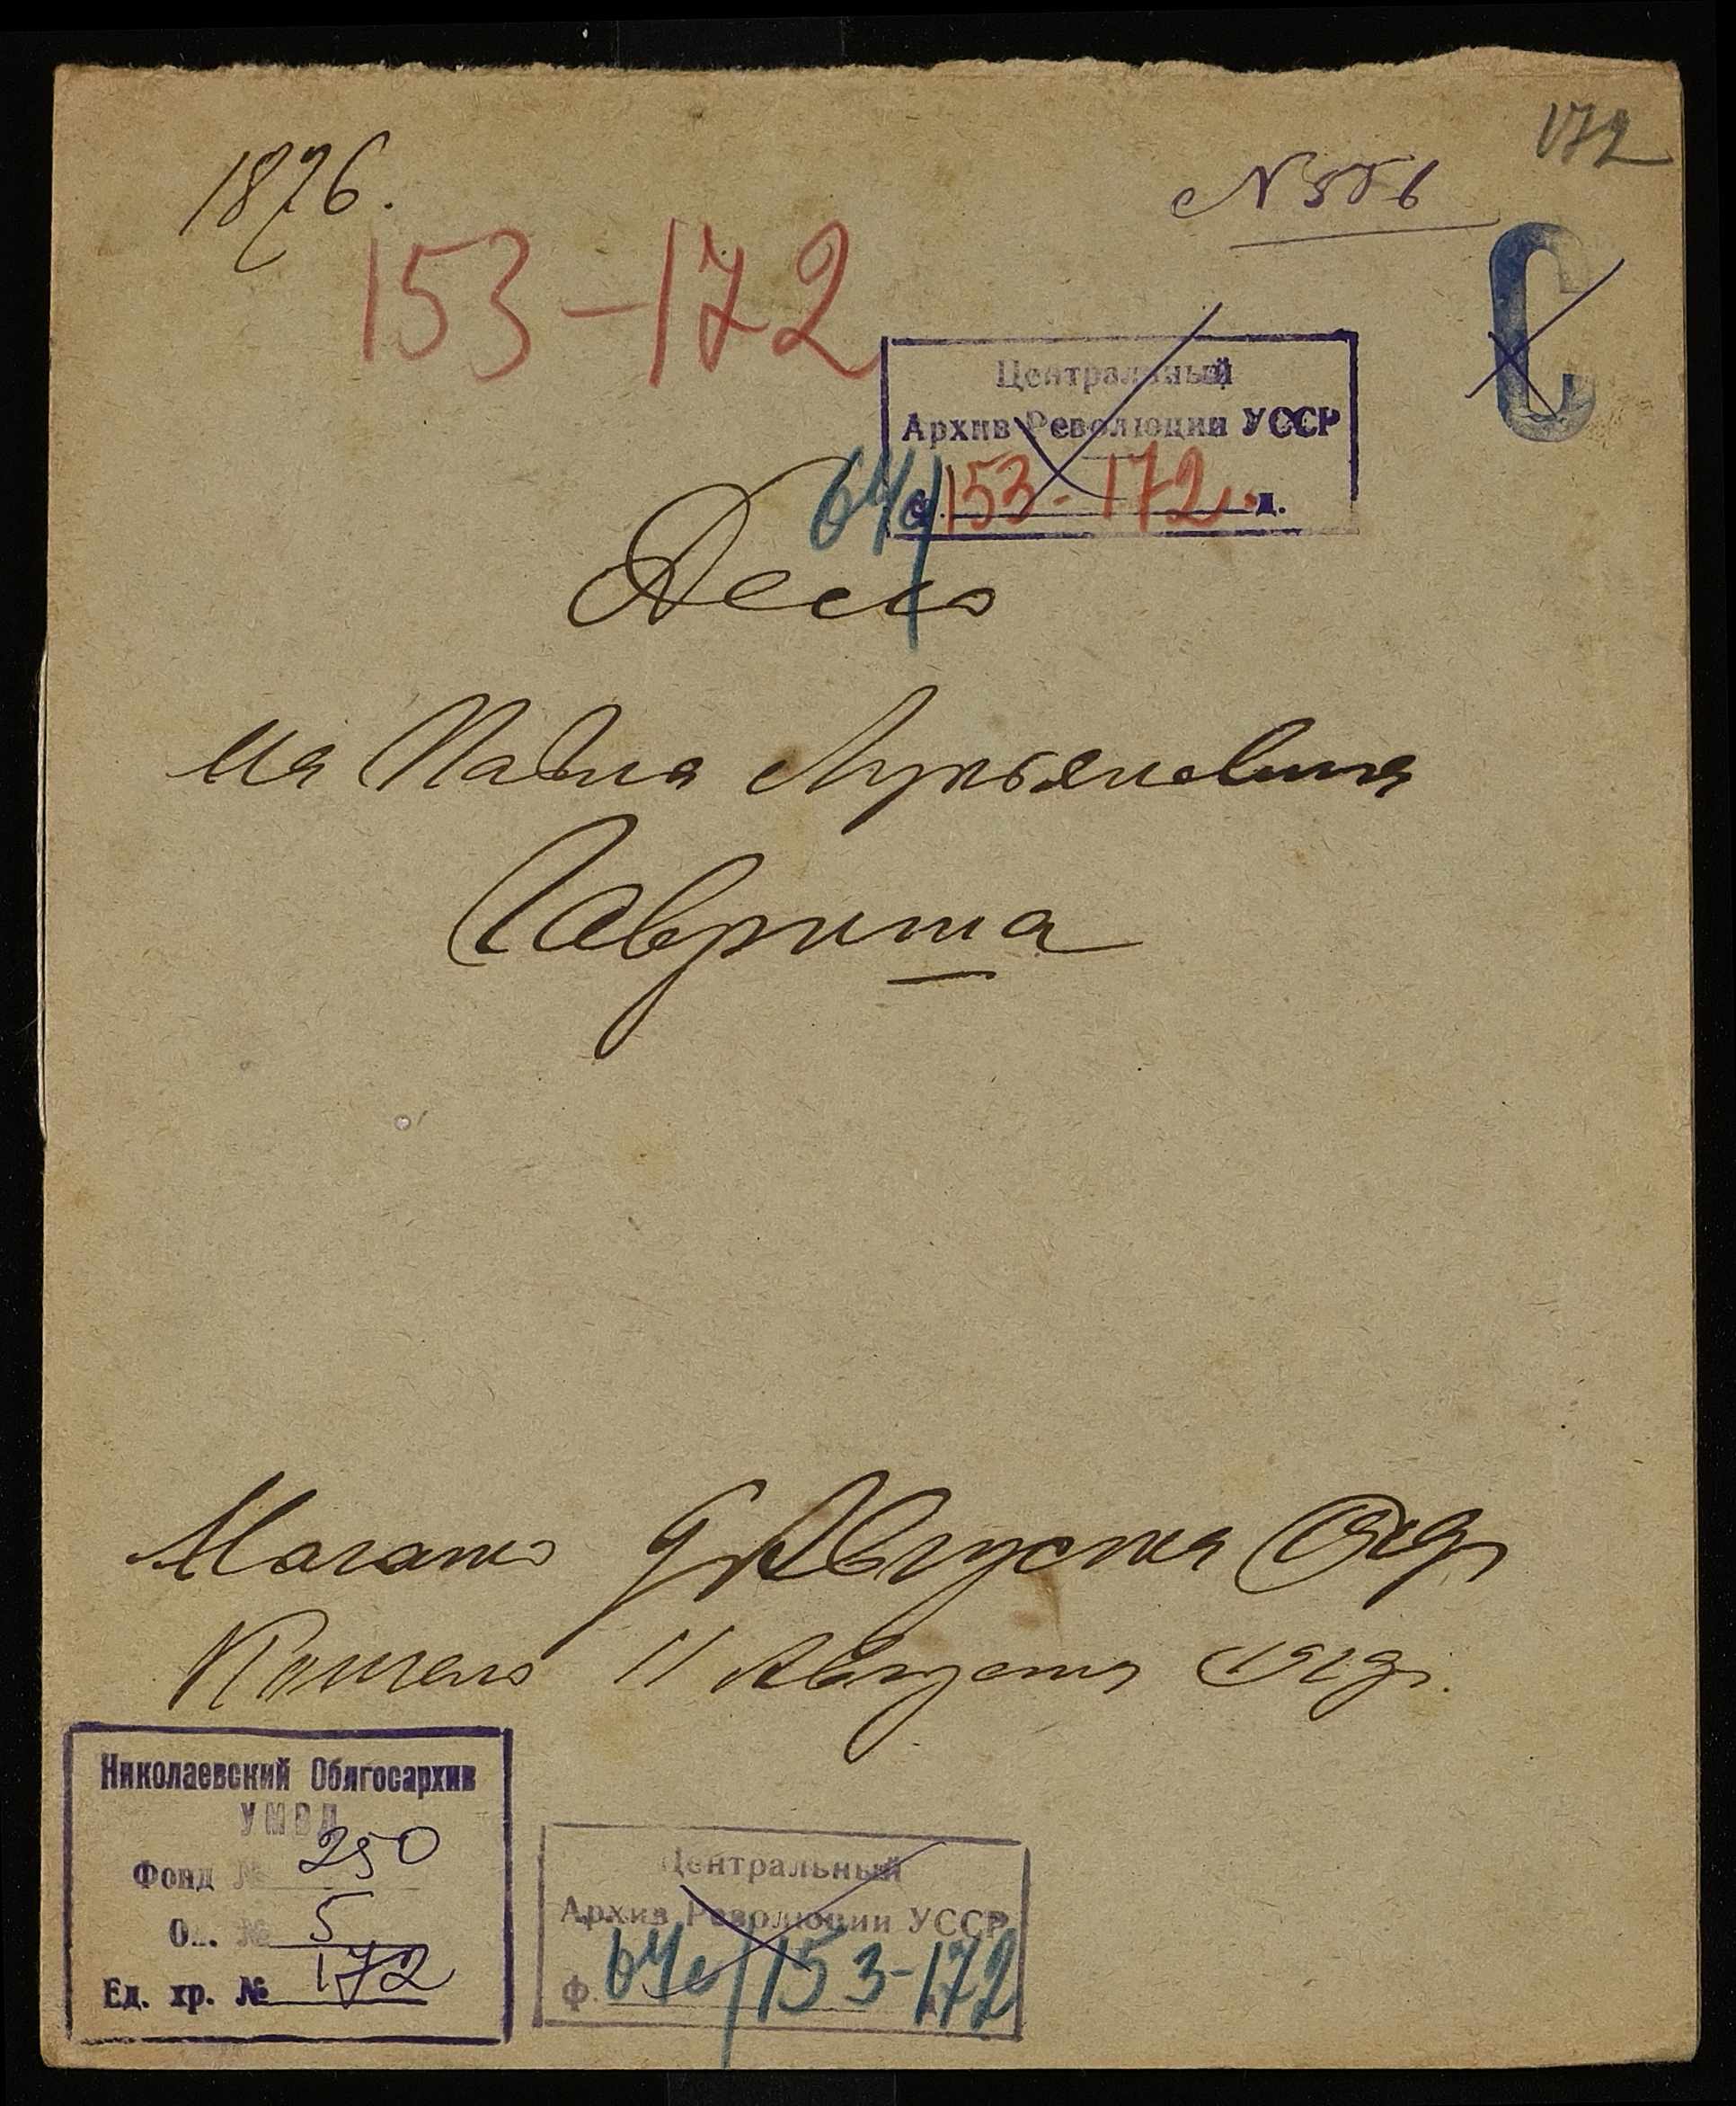 172
1876.
№ 556
153-172
С
Центральный
Архив Революции УССР
64 ф. 153-172 д.
Дело
на Павла Лукьяновича
Гавриша
Начато 9 Августа 192 г.
Кончено 11 Августа 192 г.
Николаевский Облгосархив
УМВД
Фонд № 250
Оп. № 5
Ед. хр. № 172
Центральный
Архив Революции УССР
Ф. 153-172